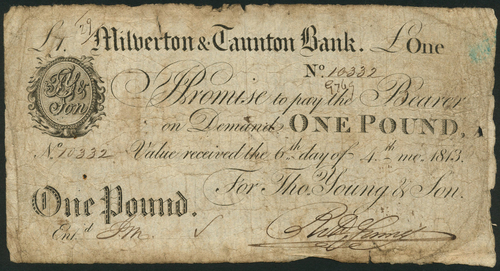 £1. Milverton & Taunton Bank. £One
No. 10332
T.Y. & Son
I Promise to pay the Bearer
on Demand ONE POUND, A
No. 10332 Value received the 6th day of 4th mo. 1813.
For Tho. Young & Son.
One Pound.
Ent'd